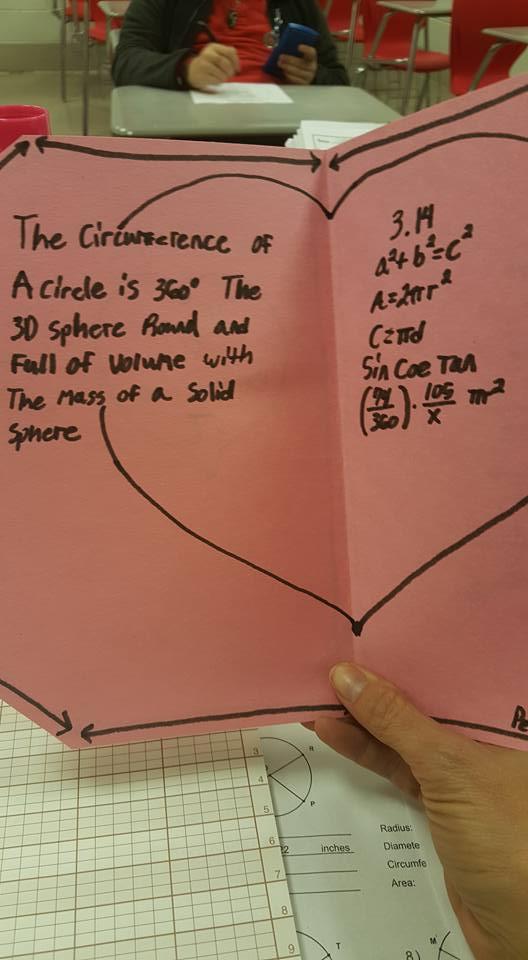 The Circumference of
A circle is 360° The
3D sphere Round and
Full of Volume with
The Mass of a Solid
Sphere
3.14
a²+b²=c²
A=2πr²
C=πd
Sin Coe Tan
(74/360) · 105/x πr²
3
4
5
6
7
8
9
R
P
inches
Radius:
Diamete
Circumfe
Area:
T
8)
M